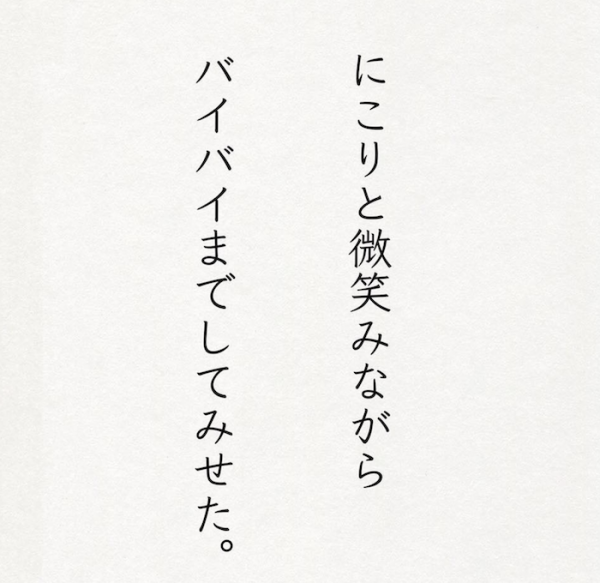 にこりと微笑みながら
バイバイまでしてみせた。